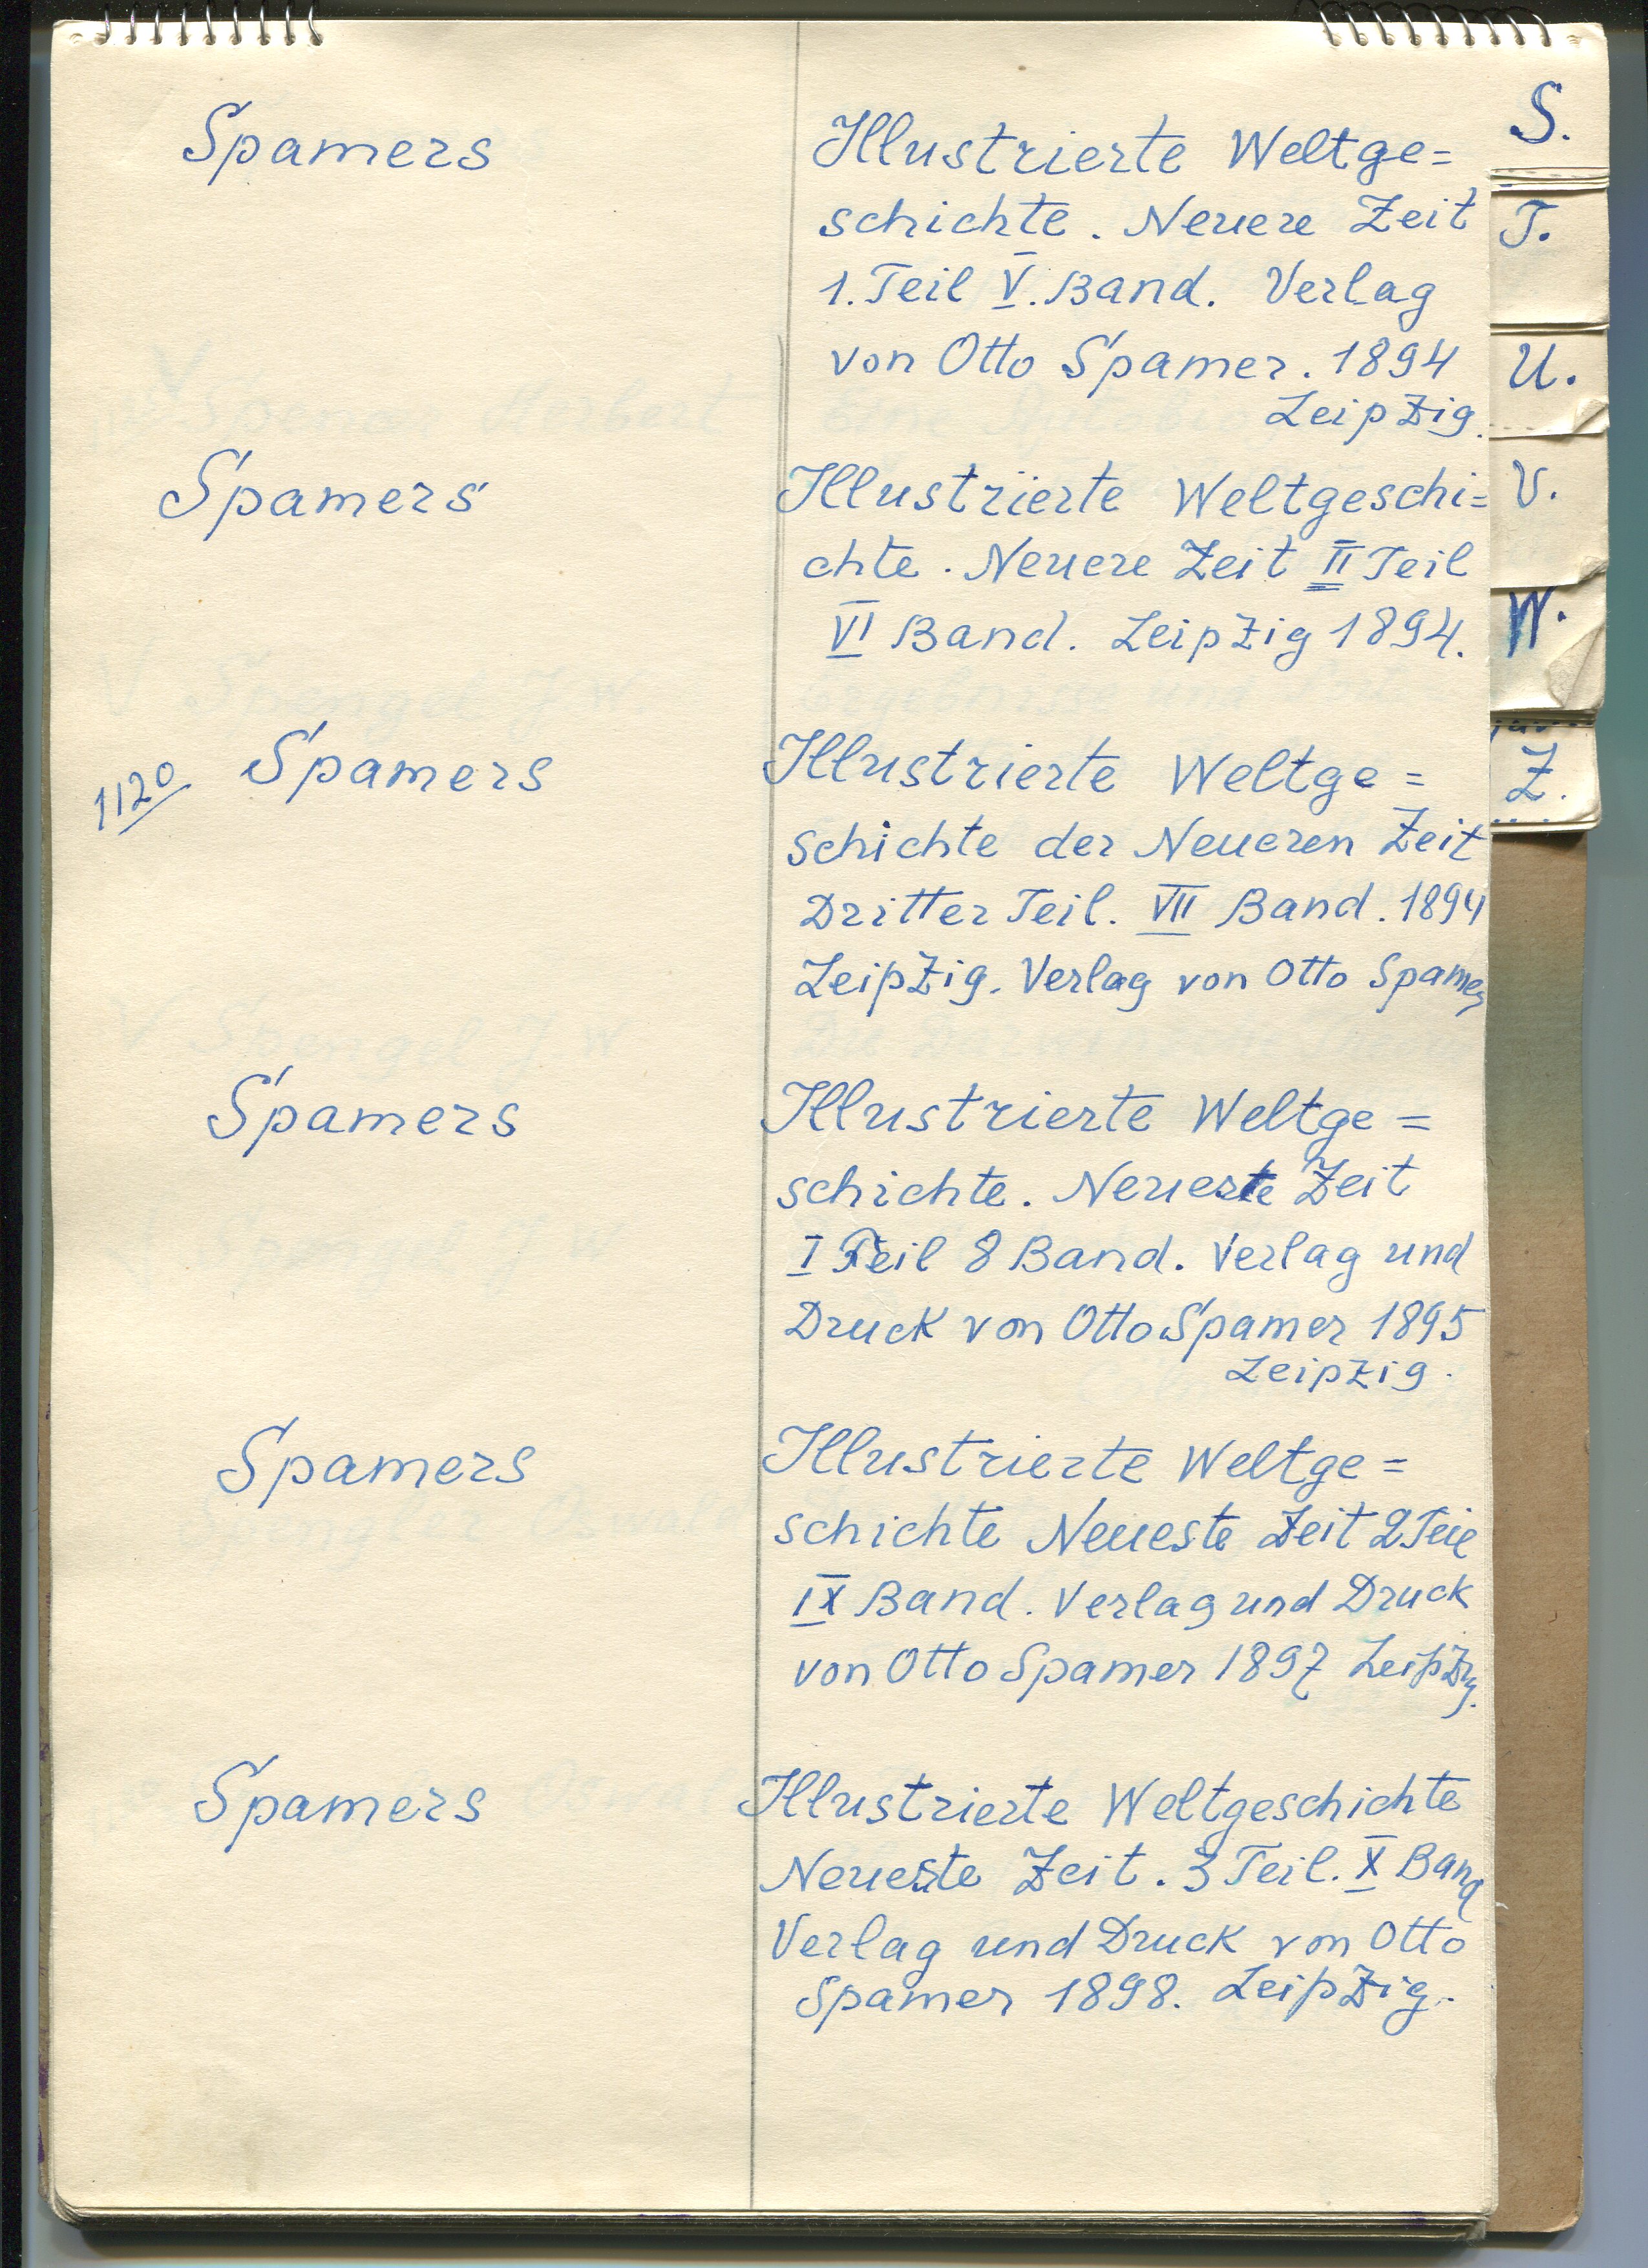 Spamers
Illustrierte Weltge=
schichte. Neuere Zeit
1. Teil V. Band. Verlag
von Otto Spamer. 1894
Leipzig.
Spamers
Illustrierte Weltgeschi=
chte. Neuere Zeit II Teil
VI Band. Leipzig 1894.
1120
Spamers
Illustrierte Weltge=
schichte der Neueren Zeit
Dritter Teil. VII Band. 1894
Leipzig. Verlag von Otto Spamer
Spamers
Illustrierte Weltge=
schichte. Neueste Zeit
I Teil 8 Band. Verlag und
Druck von Otto Spamer 1895
Leipzig.
Spamers
Illustrierte Weltge=
schichte Neueste Zeit 2 Teil
IX Band. Verlag und Druck
von Otto Spamer 1897 Leipzig.
Spamers
Illustrierte Weltgeschichte
Neueste Zeit. 3 Teil. X Band
Verlag und Druck von Otto
Spamer 1898. Leipzig.
S.
T.
U.
V.
W.
Z.